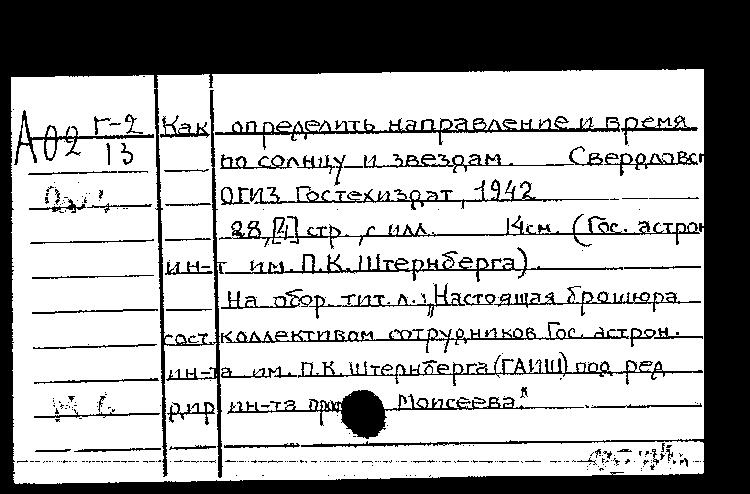 А02 г-2
13
Как определить направление и время
по солнцу и звездам. Свердловск
ОГИЗ Гостехиздат, 1942
28,[4] стр., с илл. 14см. (Гос. астрон
ин-т им. П.К. Штернберга)
На обор. тит. л.: „Настоящая брошюра
сост. коллективом сотрудников Гос. астрон.
ин-та им. П.К. Штернберга (ГАИШ) под ред
дир ин-та Моисеева."